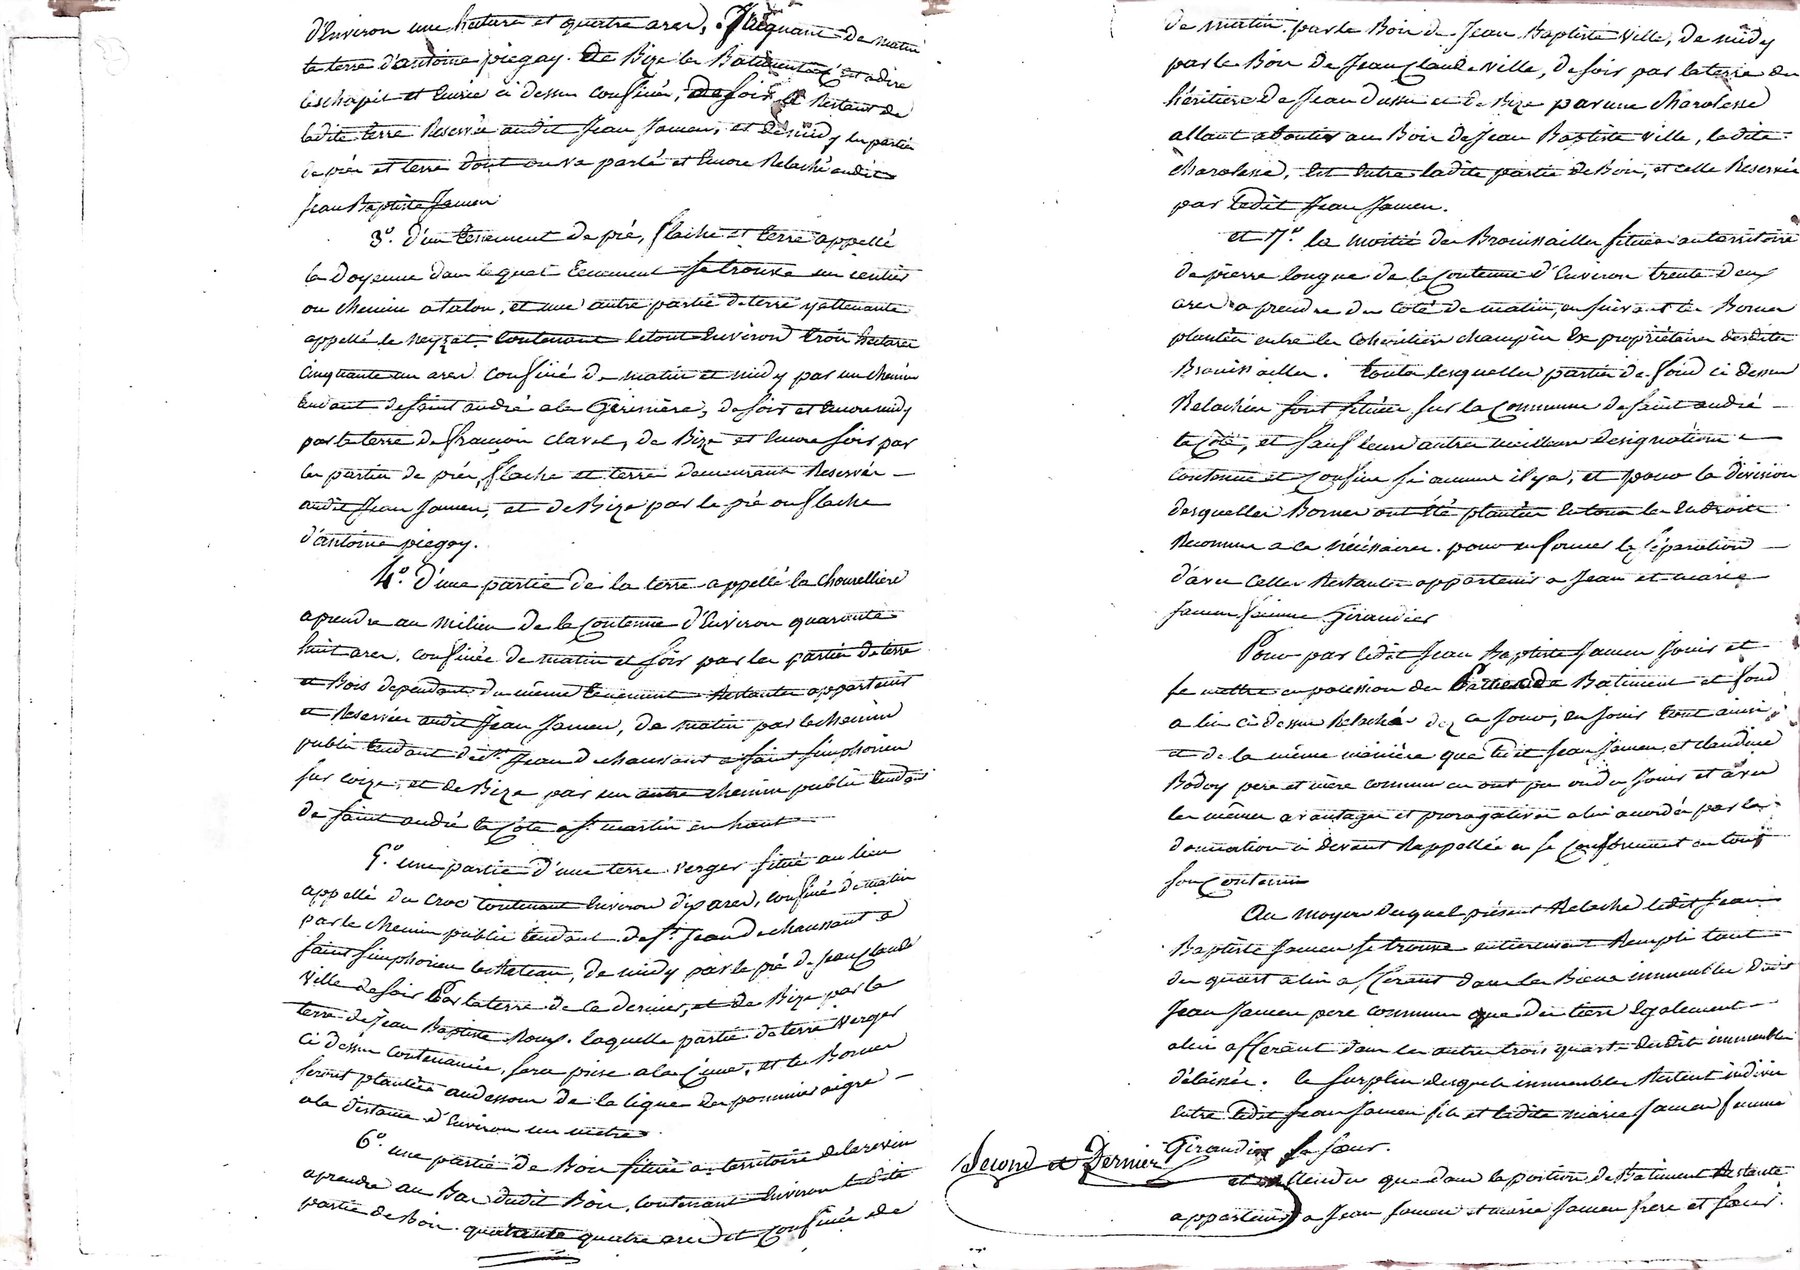 d'Environ une hectare et quatre ares, Joignant de matin
la terre d'antoine piegay. De Bize les Batiments C'est a dire
le chapit et Ecurie ci dessus confinés, de soir le Restant de
ladite terre Reservée audit Jean Jamen, et de midy les parties
de pré et terre dont on va parlé et Encore Relaché audit
Jean Baptiste Jamen
3.° d'un tenement de pré, flache et terre appellé
la Doyenne dans lequel tenement se trouve un sentier
ou chemin a talon, et une autre partie de terre y attenante
appellé le neyzat contenant le tout Environ trois hectares
cinquante un ares confiné de matin et midy par un chemin
tendant de saint andré a la Géresière, de soir et Encore midy
par la terre de françois clavel, de Bize et Encore soir par
les parties de pré, flache et terre demeurant Reservés
audit Jean Jamen, et de Bize par le pré ou flache
d'antoine piegay.
4.° D'une partie de la terre appellé la Chourelliere
a prendre au milieu de la Contenue d'Environ quarante
huit ares, confinée de matin et soir par les parties de terre
et Bois dependant du même tenement Restantes appartenir
et Reservées audit Jean Jamen, de matin par le chemin
public tendant de St. Jean de chaussant a saint simphorien
sur coize, et de Bize par un autre chemin public tendant
de saint andré la Côte a St. martin en haut
5.° une partie d'une terre verger située au lieu
appellé du croc contenant Environ dix ares, confiné de matin
par le chemin public tendant de St. Jean de chaussant a
saint simphorien le chateau, de midy par le pré de Jean Claude
Ville de soir Par la terre de ce dernier, et de Bize par la
terre de Jean Baptiste Roux. laquelle partie de terre Verger
ci dessus contenancée, sera prise a la Cime, et les Bornes
seront plantées au dessous de la ligne des pommiers aigre
a la distance d'Environ un metre.
6.° une partie de Bois située au territoire de la revin
a prendre au Bas dudit Bois, contenant Environ ladite
partie de Bois quarante quatre ares et confinée de
de matin par le Bois de Jean Baptiste Ville, de midy
par le Bois de Jean Claude Ville, de soir par la terre des
héritiers de Jean Dussu et de Bize par une charolesse
allant aboutir au Bois de Jean Baptiste Ville, ladite
charolesse, Est Entre ladite partie de Bois, et celle Reservée
par ledit Jean Jamen.
et 7.° la moitié des Brouissailles situées au territoire
de pierre longue de la Contenue d'Environ trente deux
ares a prendre du coté de matin, en suivant les Bornes
plantées entre les cohéritiers champin Ex propriétaires desdites
Brouissailles. toutes lesquelles parties de fond ci dessus
Relachées sont situées sur la Commune de saint andré
la Côte, et sauf leurs autres meilleurs designations
contenue et Confins si aucuns il y a, et pour la division
desquelles Bornes ont été plantées En tous les Endroits
Reconnus a ce nécessaires. pour en former la séparation
d'avec Celles Restantes appartenir a Jean et marie
Jamen femme Giraudier
Pour par ledit Jean Baptiste Jamen Jouir et
se mettre en possession des Parties de Batiment et fond
a lui ci dessus Relaché dez ce jour, en Jouir tout ainsi
et de la même maniere que ledit Jean Jamen et claudine
Bodoy pere et mère commun en ont pu ou du Jouir et avec
les mêmes avantages et prorogatives a lui accordés par la
donnation ci devant Rappellée en se Conformant en tout
son Contenu
Au moyen duquel présent Relaché ledit Jean
Baptiste Jamen se trouve entierement Rempli tant
du quart a lui afferent dans les Biens immeubles dudit
Jean Jamen pere commun que du tiers Egalement
a lui afferent dans les autres trois quarts desdits immeubles
délaissés. le surplus desquels immeubles Restent indivis
Entre ledit Jean Jamen fils et ladite marie Jamen femme
Giraudier sa sœur.
Second et Dernier
et Entendu que dans la portion de Batiment Restante
appartenir a Jean Jamen et marie Jamen frere et sœur.